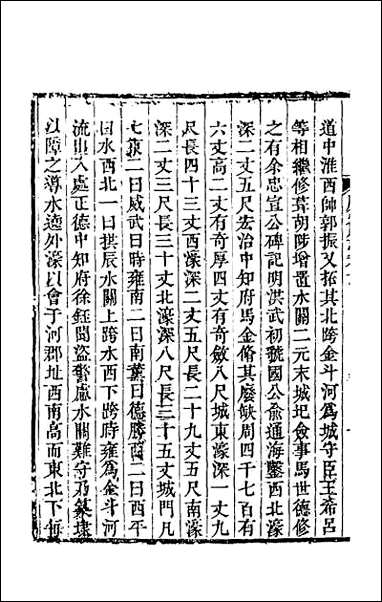 道中淮西帥郭振又拓其北跨金斗河爲城守臣王希呂
等相繼修葺胡陟增置水關二元末城圮僉事馬世德修
之有余忠宣公碑記明洪武初虢國公俞通海鑿西北濠
深二丈五尺宏治中知府馬金脩其廢缺周四千七百有
六丈高二丈有奇厚四丈有奇斂八尺城東濠深一丈九
尺長四十三丈西濠深二丈五尺長二十九丈五尺南濠
深二丈三尺長三十丈北濠深八尺長三十五丈城門凡
七東二曰威武曰時雍南二曰南薰曰德勝西二曰西平
曰水西北一曰拱辰水關上跨水西下跨時雍爲金斗河
流出入處正德中知府徐鈺聞盜警慮水關難守乃築堤
以障之導水遶外濠以會于河郡址西南高而東北下每